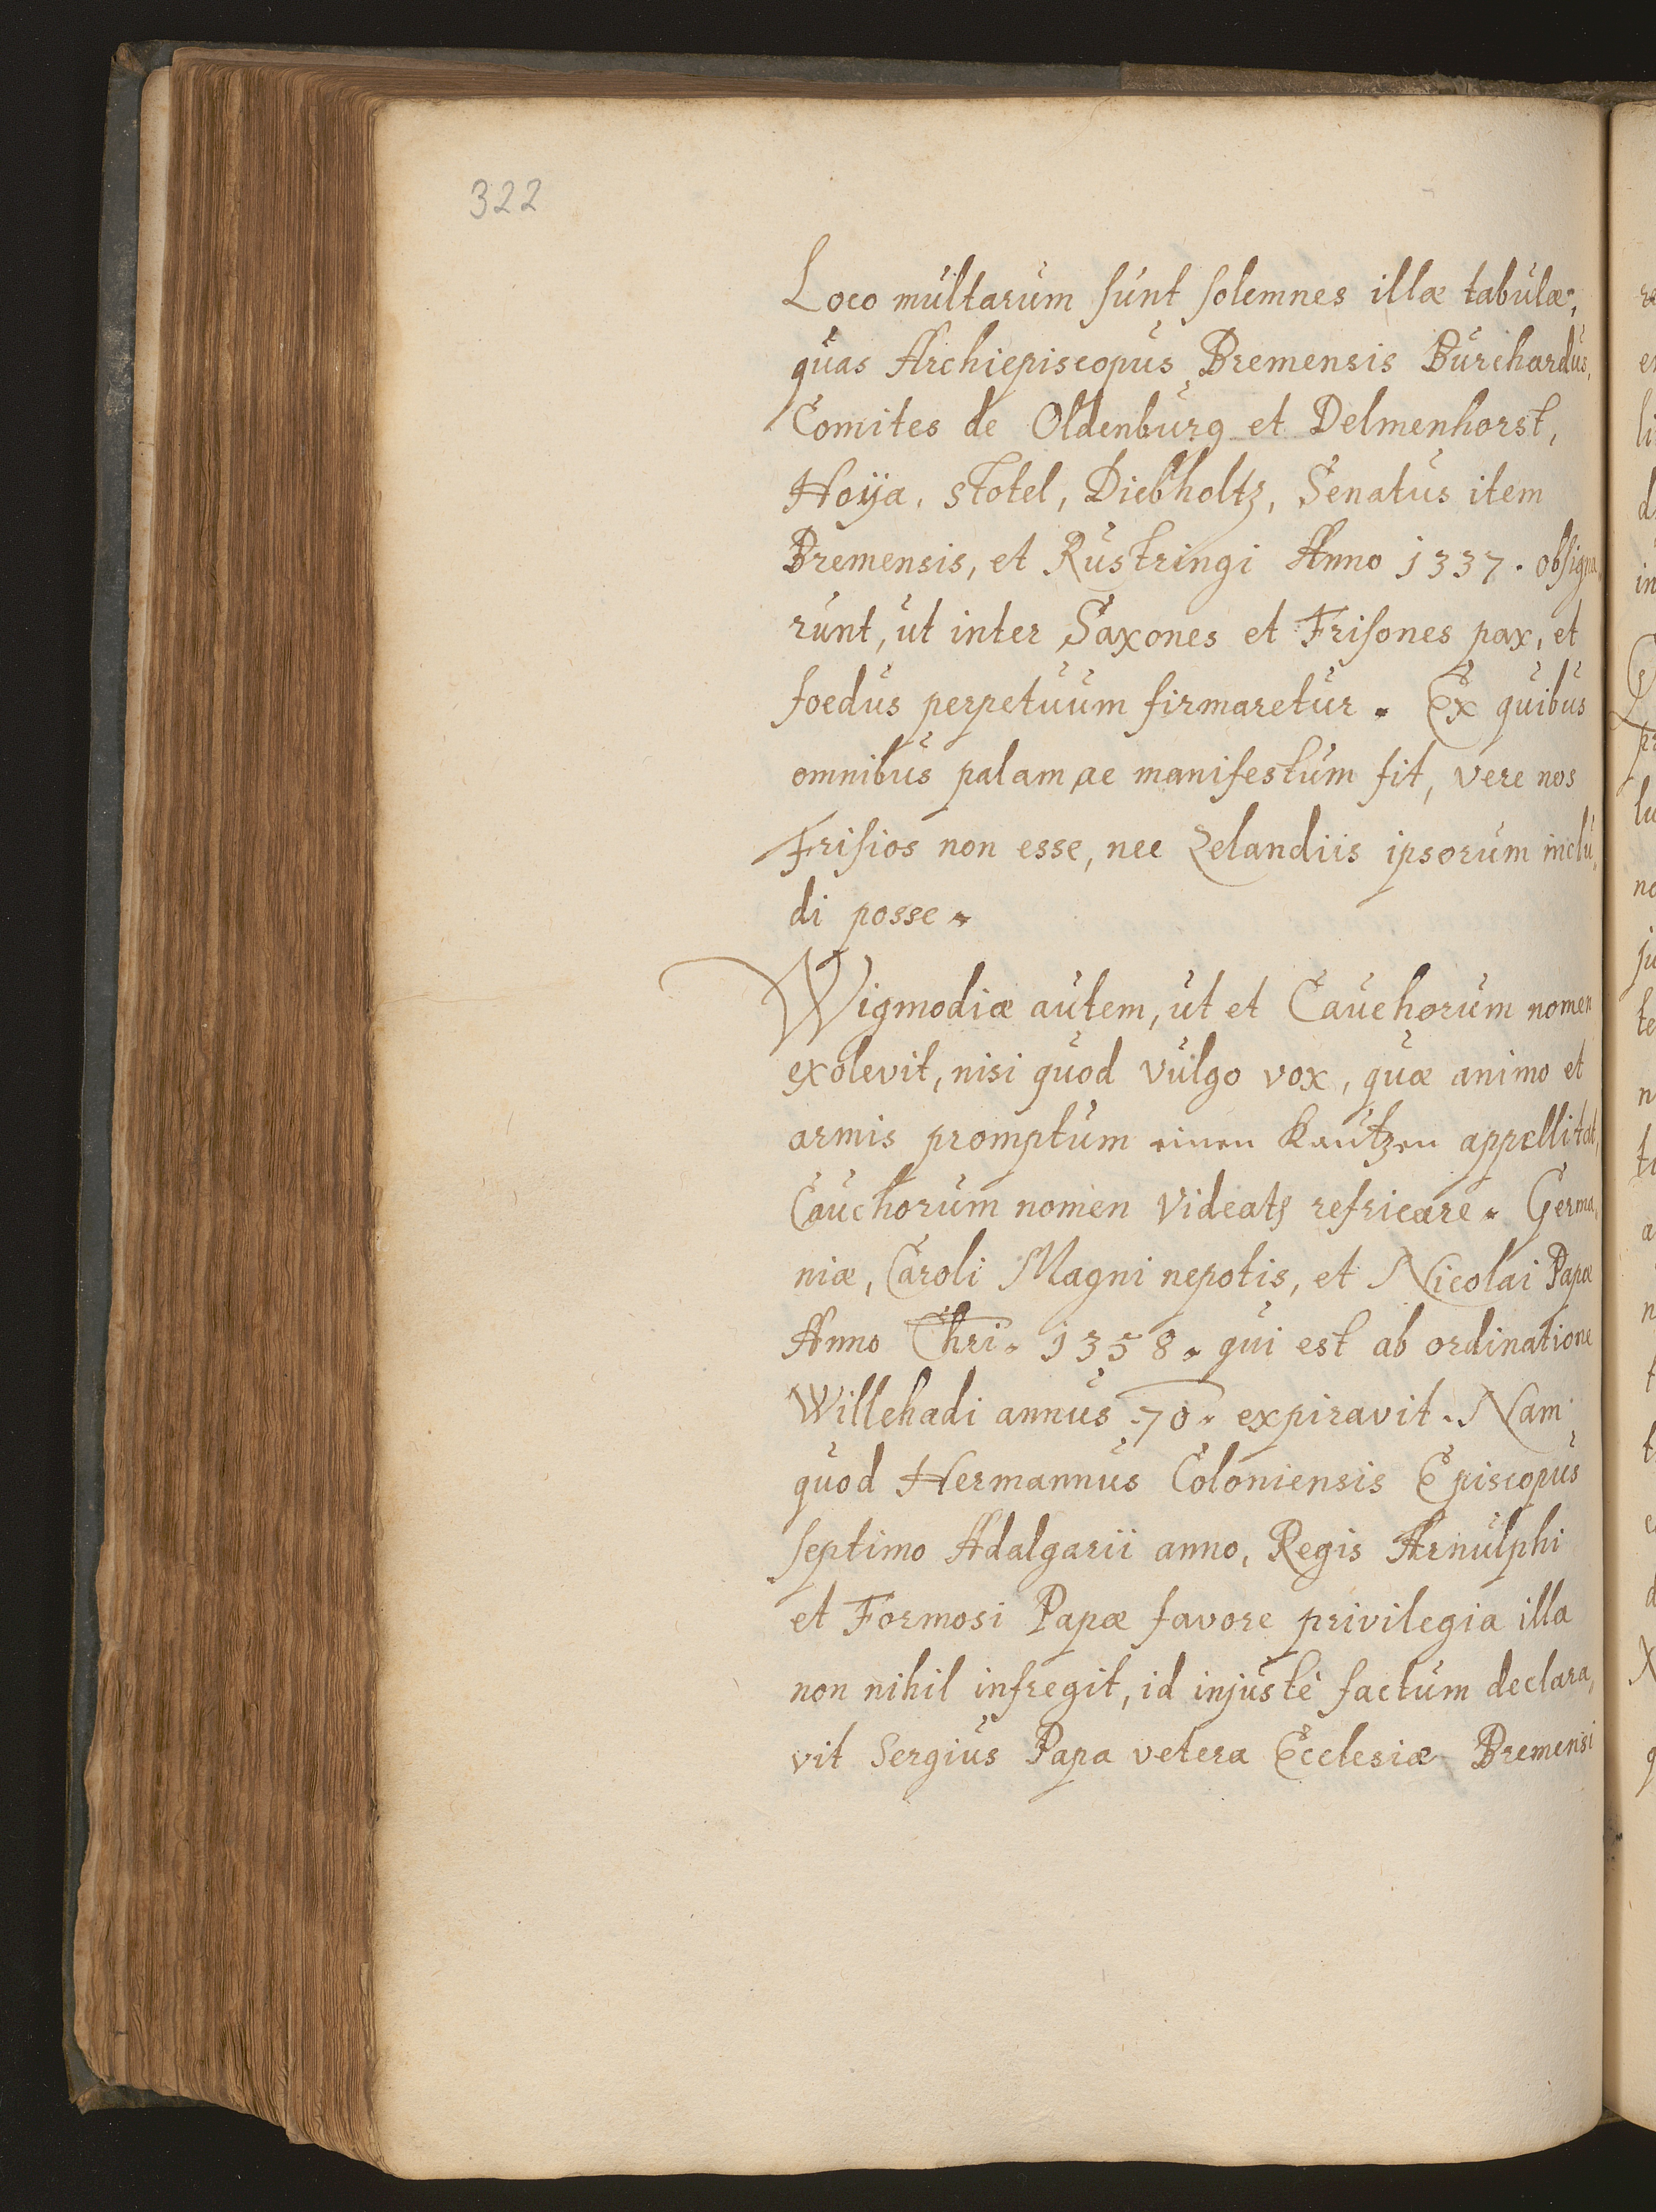 322
Loco multarum sunt solemnes illæ tabulæ,
quas Archiepiscopus Bremensis Burchardus,
Comites de Oldenburg et Delmenhorst,
Hoÿa, Stotel, Diebholtz, Senatus item
Bremensis, et Rustringi Anno 1337. obsigna,
runt, ut inter Saxones et Frisones pax, et
foedus perpetuum firmaretur. Ex quibus
omnibus palam ac manifestum fit, vere nos
Frisios non esse, nec Zelandiis ipsorum inclu,
di posse.
Wigmodiæ autem, ut et Cauchorum nomen
exolevit, nisi quod vulgo vox, quæ animo et
armis promptum einen Kautzen appellitat,
Cauchorum nomen videatꝭ refricare. Germa,
niæ, Caroli Magni nepotis, et Nicolai Papæ
Anno Chri. 1358. qui est ab ordinatione
Willehadi annus 70. expiravit. Nam
quod Hermannus Coloniensis Episcopus
septimo Adalgarii anno, Regis Arnulphi
et Formosi Papæ favore privilegia illa
non nihil infregit, id injustè factum declara,
vit Sergius Papa vetera Ecclesiæ Bremensi